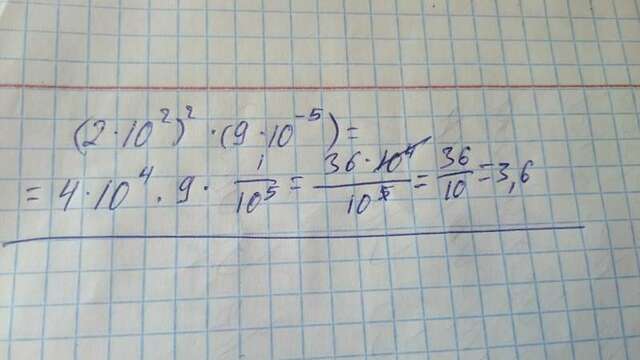 (2·10²)²·(9·10⁻⁵)=
=4·10⁴·9·1/10⁵=36·10⁴/10⁵=36/10=3,6